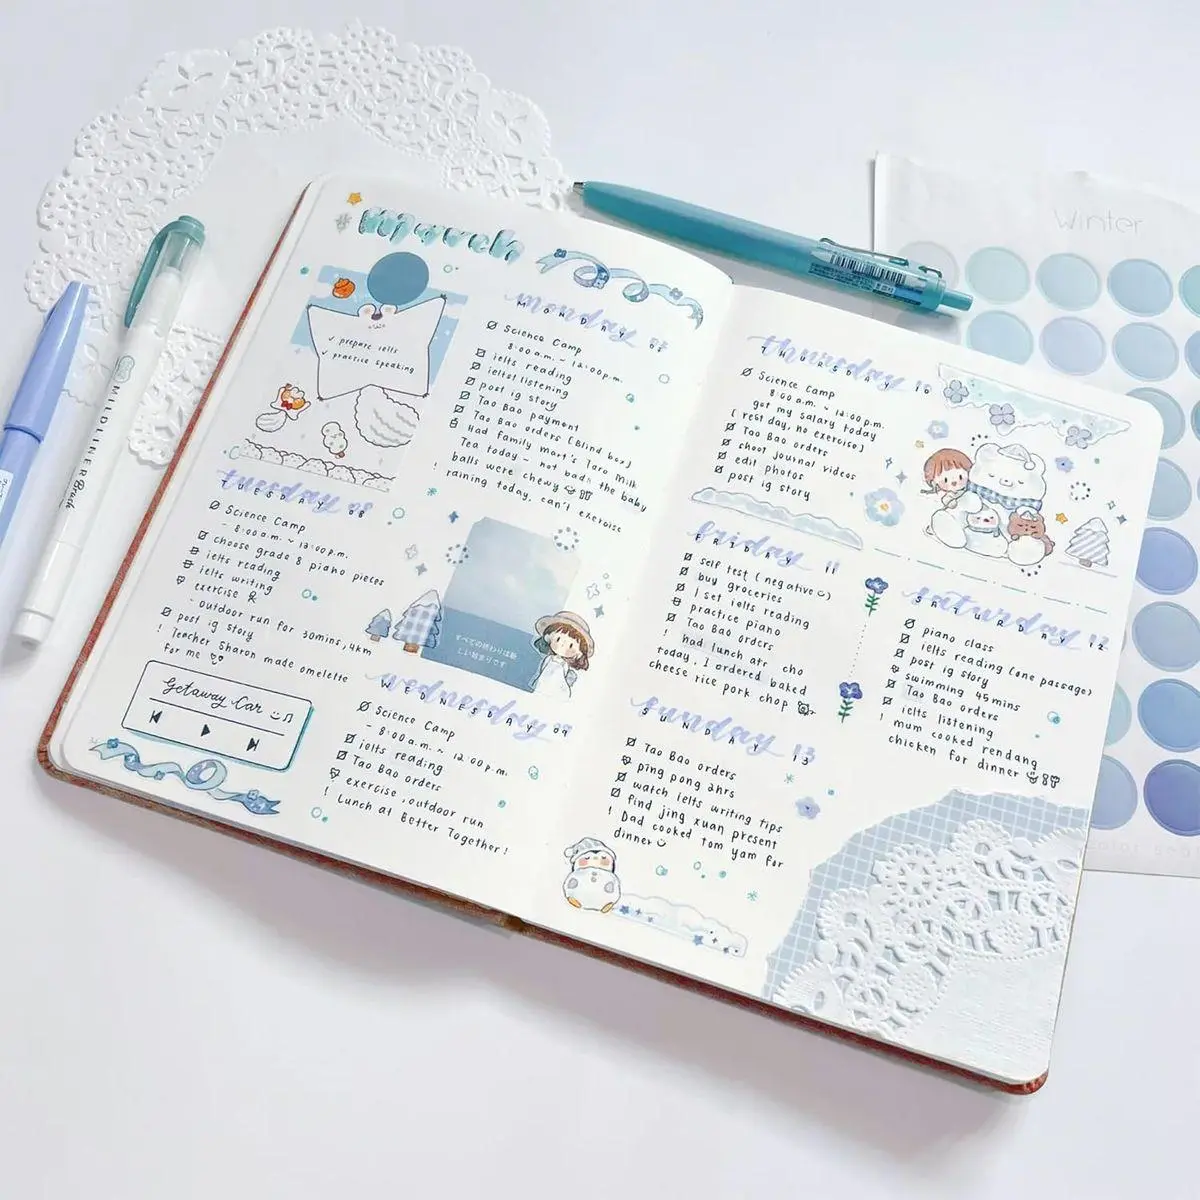 March
✓ prepare ielts
✓ practice speaking
monday
MONDAY
Science Camp
8:00 a.m. ~ 12:00 p.m.
ielts reading
ielts! listening
post ig story
Tao Bao payment
Tao Bao orders (Blind box)
! Had family mart's Taro Milk
Tea today ~ not bad! the baby
balls were chewy
! raining today, can't exercise
tuesday
TUESDAY 08
Science Camp
- 8:00 a.m. ~ 12:00 p.m.
choose grade 8 piano pieces
ielts reading
ielts writing
exercise
- outdoor run for 30mins, 4km
post ig story
! Teacher Sharon made omelette
for me
Getaway Car
すべての終わりは新
しい始まりです
wednesday
WEDNESDAY 09
Science Camp
- 8:00 a.m. ~ 12:00 p.m.
ielts reading
Tao Bao orders
exercise, outdoor run
! Lunch at Better Together!
thursday
THURSDAY 10
Science Camp
8:00 a.m. ~ 12:00 p.m.
got my salary today
(rest day, no exercise)
Tao Bao orders
shoot journal videos
edit photos
post ig story
friday
FRIDAY 11
self test (negative)
buy groceries
1 set ielts reading
practice piano
Tao Bao orders
! had lunch atr. cho
today, I ordered baked
cheese rice pork chop
saturday 12
SATURDAY 12
piano class
ielts reading (one passage)
post ig story
swimming 45mins
Tao Bao orders
ielts listening
! mum cooked rendang
chicken for dinner
sunday 13
SUNDAY 13
Tao Bao orders
ping pong 2hrs
watch ielts writing tips
find jing xuan present
! Dad cooked tom yam for
dinner
MILDLINER Brush
Winter